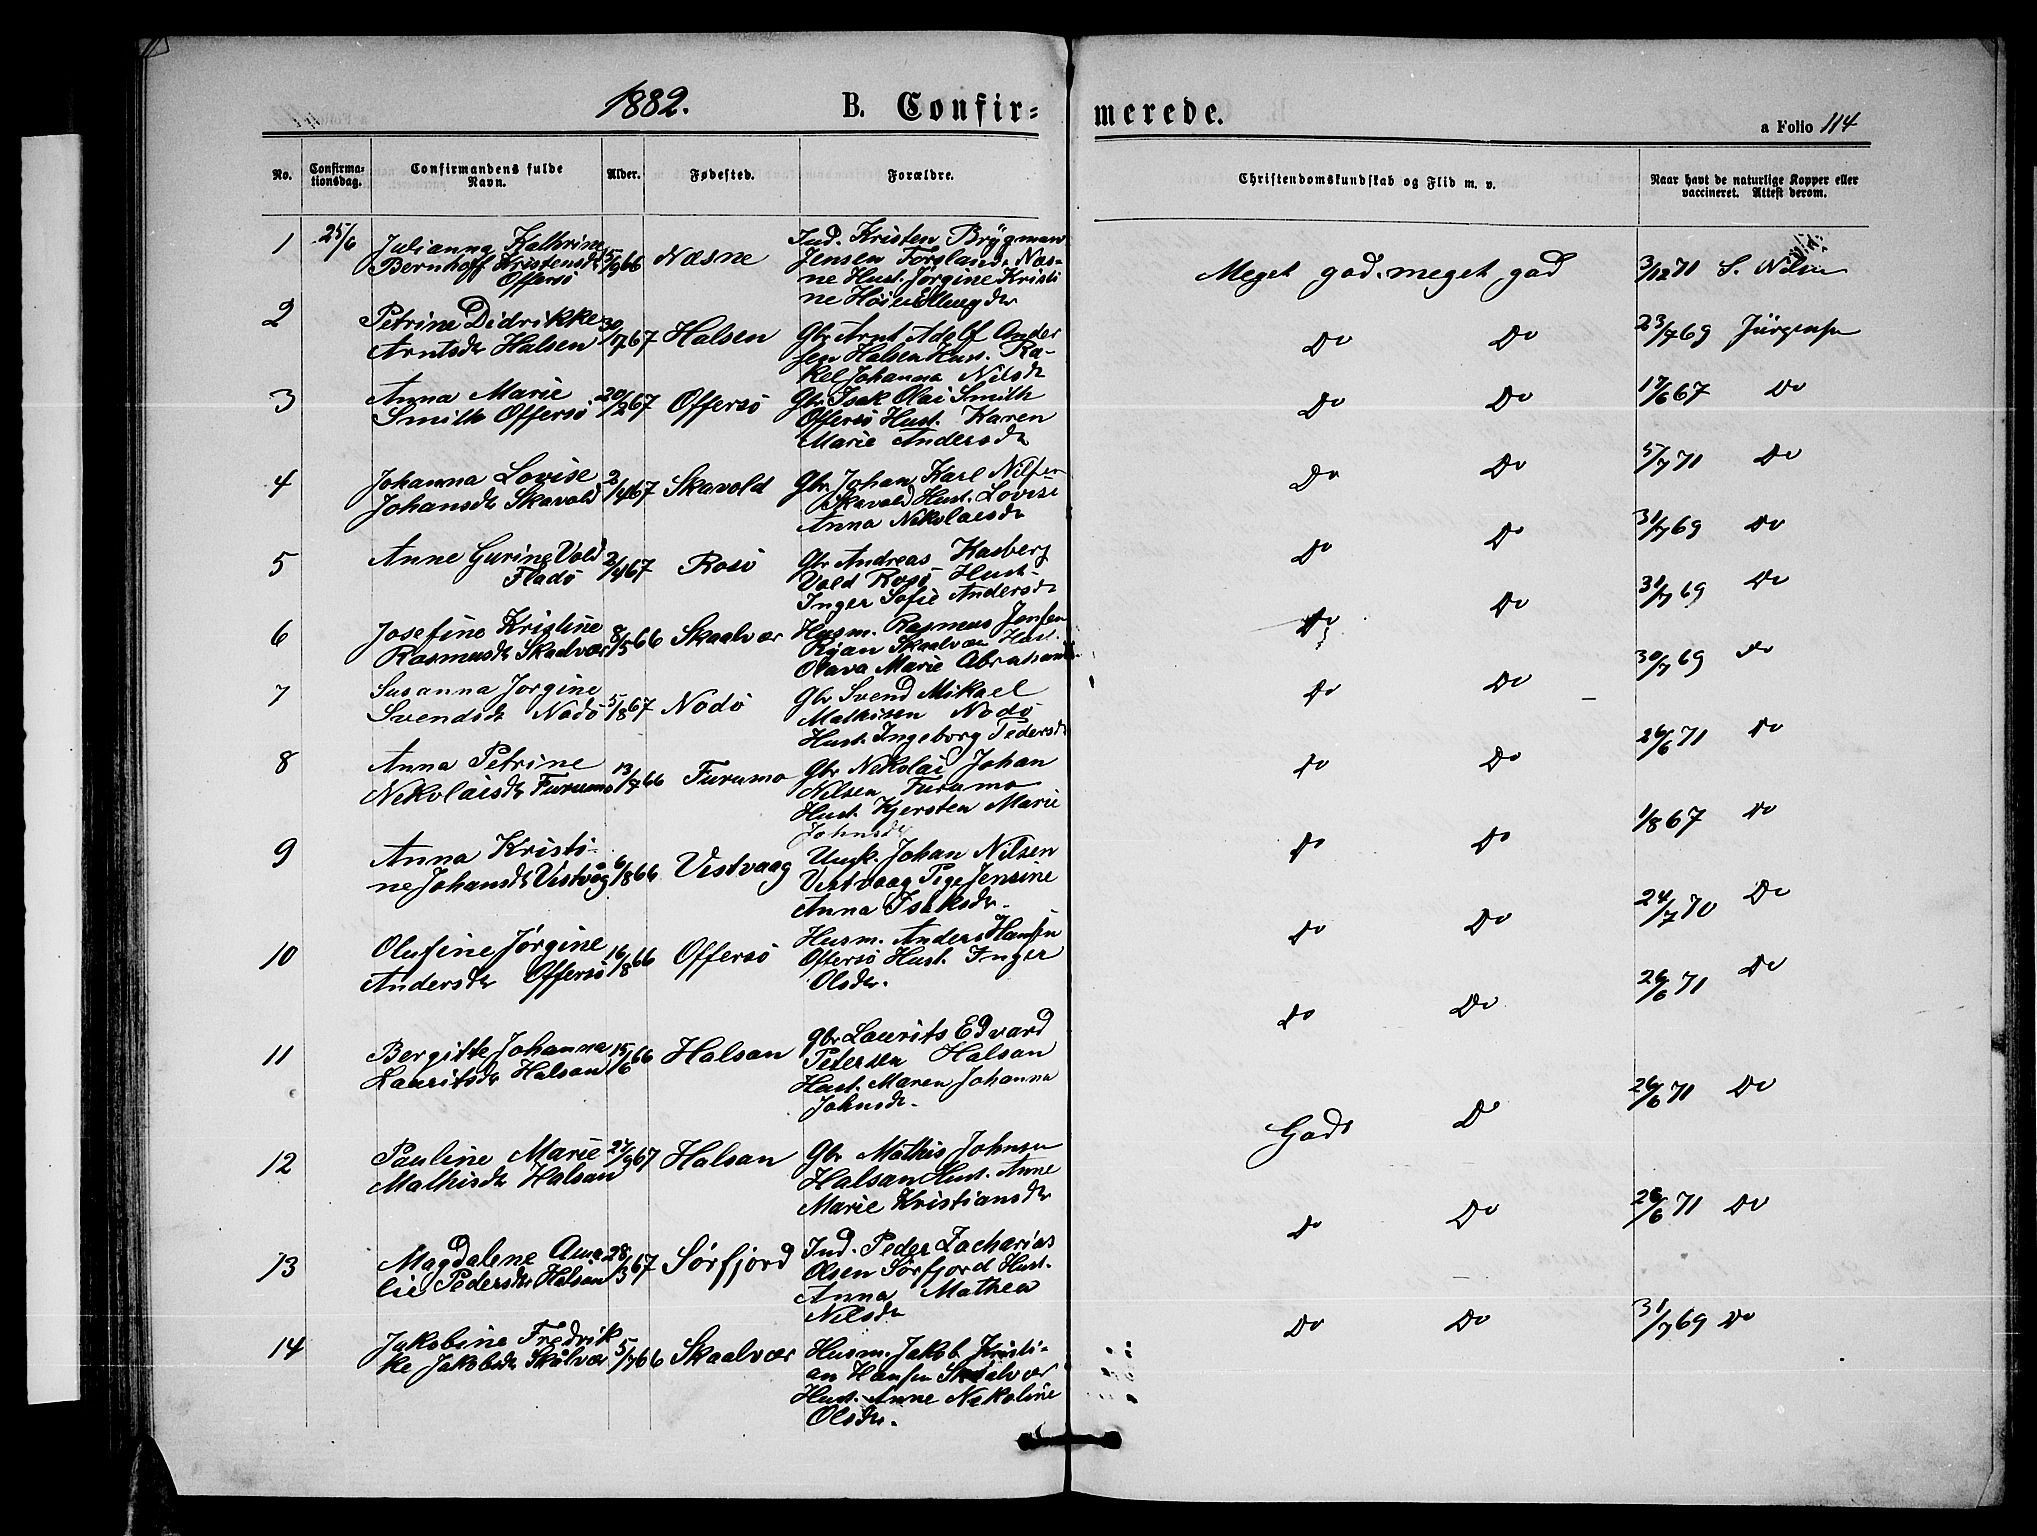 1882. B. Confirmerede. a Folio 114
No. Confirmationsdag. Confirmandens fulde Navn. Alder. Fødested. Forældre. Christendomskundskab og Flid m. v. Naar havt de naturlige Kopper eller vaccineret. Attest derom.
1 25/6 Julianna Kathrine Ind. Kristen Brygman
Bernhoff Kristensdr 5/9 66 Næsne Jensen Forsland Næs-
Offersö ne Hust. Jørgine Kristi Meget god. meget god 3/12 71 S. Nilsen
ne
2 Petrine Didrikke 30/1 67 Halsen Gbr Arnt Adolf Ander Do Do 23/7 69 Jürgensen
Arntsdr Halsen sen Halsen Hust. Ra-
kel Johanna Nilsdr
3 Anna Marie 20/2 67 Offersö Gbr Isak Olai Smith Do Do 17/6 67 Do
Smith Offersö Offersö Hust. Karen
Marie Andersdr
4 Johanna Lovise 2/4 67 Skavold Gbr Johan Karl Nilsen Do Do 5/7 71 Do
Johansdr Skavold Skavold Hust. Lovise
Anna Nikolaisdr
5 Anne Gurine Vold 2/4 67 Rosö Gbr Andreas Kasberg Do Do 31/7 69 Do
Fladö Vold Rosö Hust.
Inger Sofie Andersdr
6 Josefine Kristine 8/5 66 Skaalvær Husm. Rasmus Jensen Do Do 31/7 69 Do
Rasmusdr Skaalvær Skaalvær Hust.
Olava Marie
7 Susanna Jorgine 5/8 67 Nodö Gbr Svend Mikael Do Do 30/7 69 Do
Svendsdr Nodö Mathisen Nodö
Hust. Ingeborg Pedersdr
8 Anna Petrine 13/7 66 Furumo Gbr Nikolai Johan Do Do 26/6 71 Do
Nikolaisdr Furumo Nilsen Furumo
Hust. Kjersten Marie
Johnsdr
9 Anna Kristi- 6/8 66 Vestvaag Ungk. Johan Nilsen Do Do 1/8 67 Do
ne Johansdr Vestvåg Vestvaag Pige Jensine
Anna Isaksdr.
10 Olufine Jørgine 16/8 66 Offersö Husm. Anders Hansen Do Do 24/7 70 Do
Andersdr Offersö Offersö Hust. Inger
Olsdr.
11 Bergitte Johanna 15/6 66 Halsan Gbr Laurits Edvard Do Do 26/6 71 Do
Lauritsdr Halsan Petersen Halsan
Hust. Maren Johanna
Johnsdr.
12 Pauline Marie 27/9 67 Halsan Gbr Mathis Johnsen Godt Do 26/6 71 Do
Mathisdr Halsan Halsan Hust. Anne
Marie Kristiansdr
13 Magdalene Ama 28/3 67 Sörfjord Ind. Peder Zacharias Do Do 26/6 71 Do
lie Pedersdr Halsan Olsen Sörfjord Hust.
Anna Mathea
Nilsdr
14 Jakobine Fredrik 5/7 66 Skaalvær Husm. Jakob Kristi- Do Do 31/7 69 Do
ke Jakobsdr Skålvær an Hansen Skaalvær
Hust. Anne Nikoline
Olsdr.